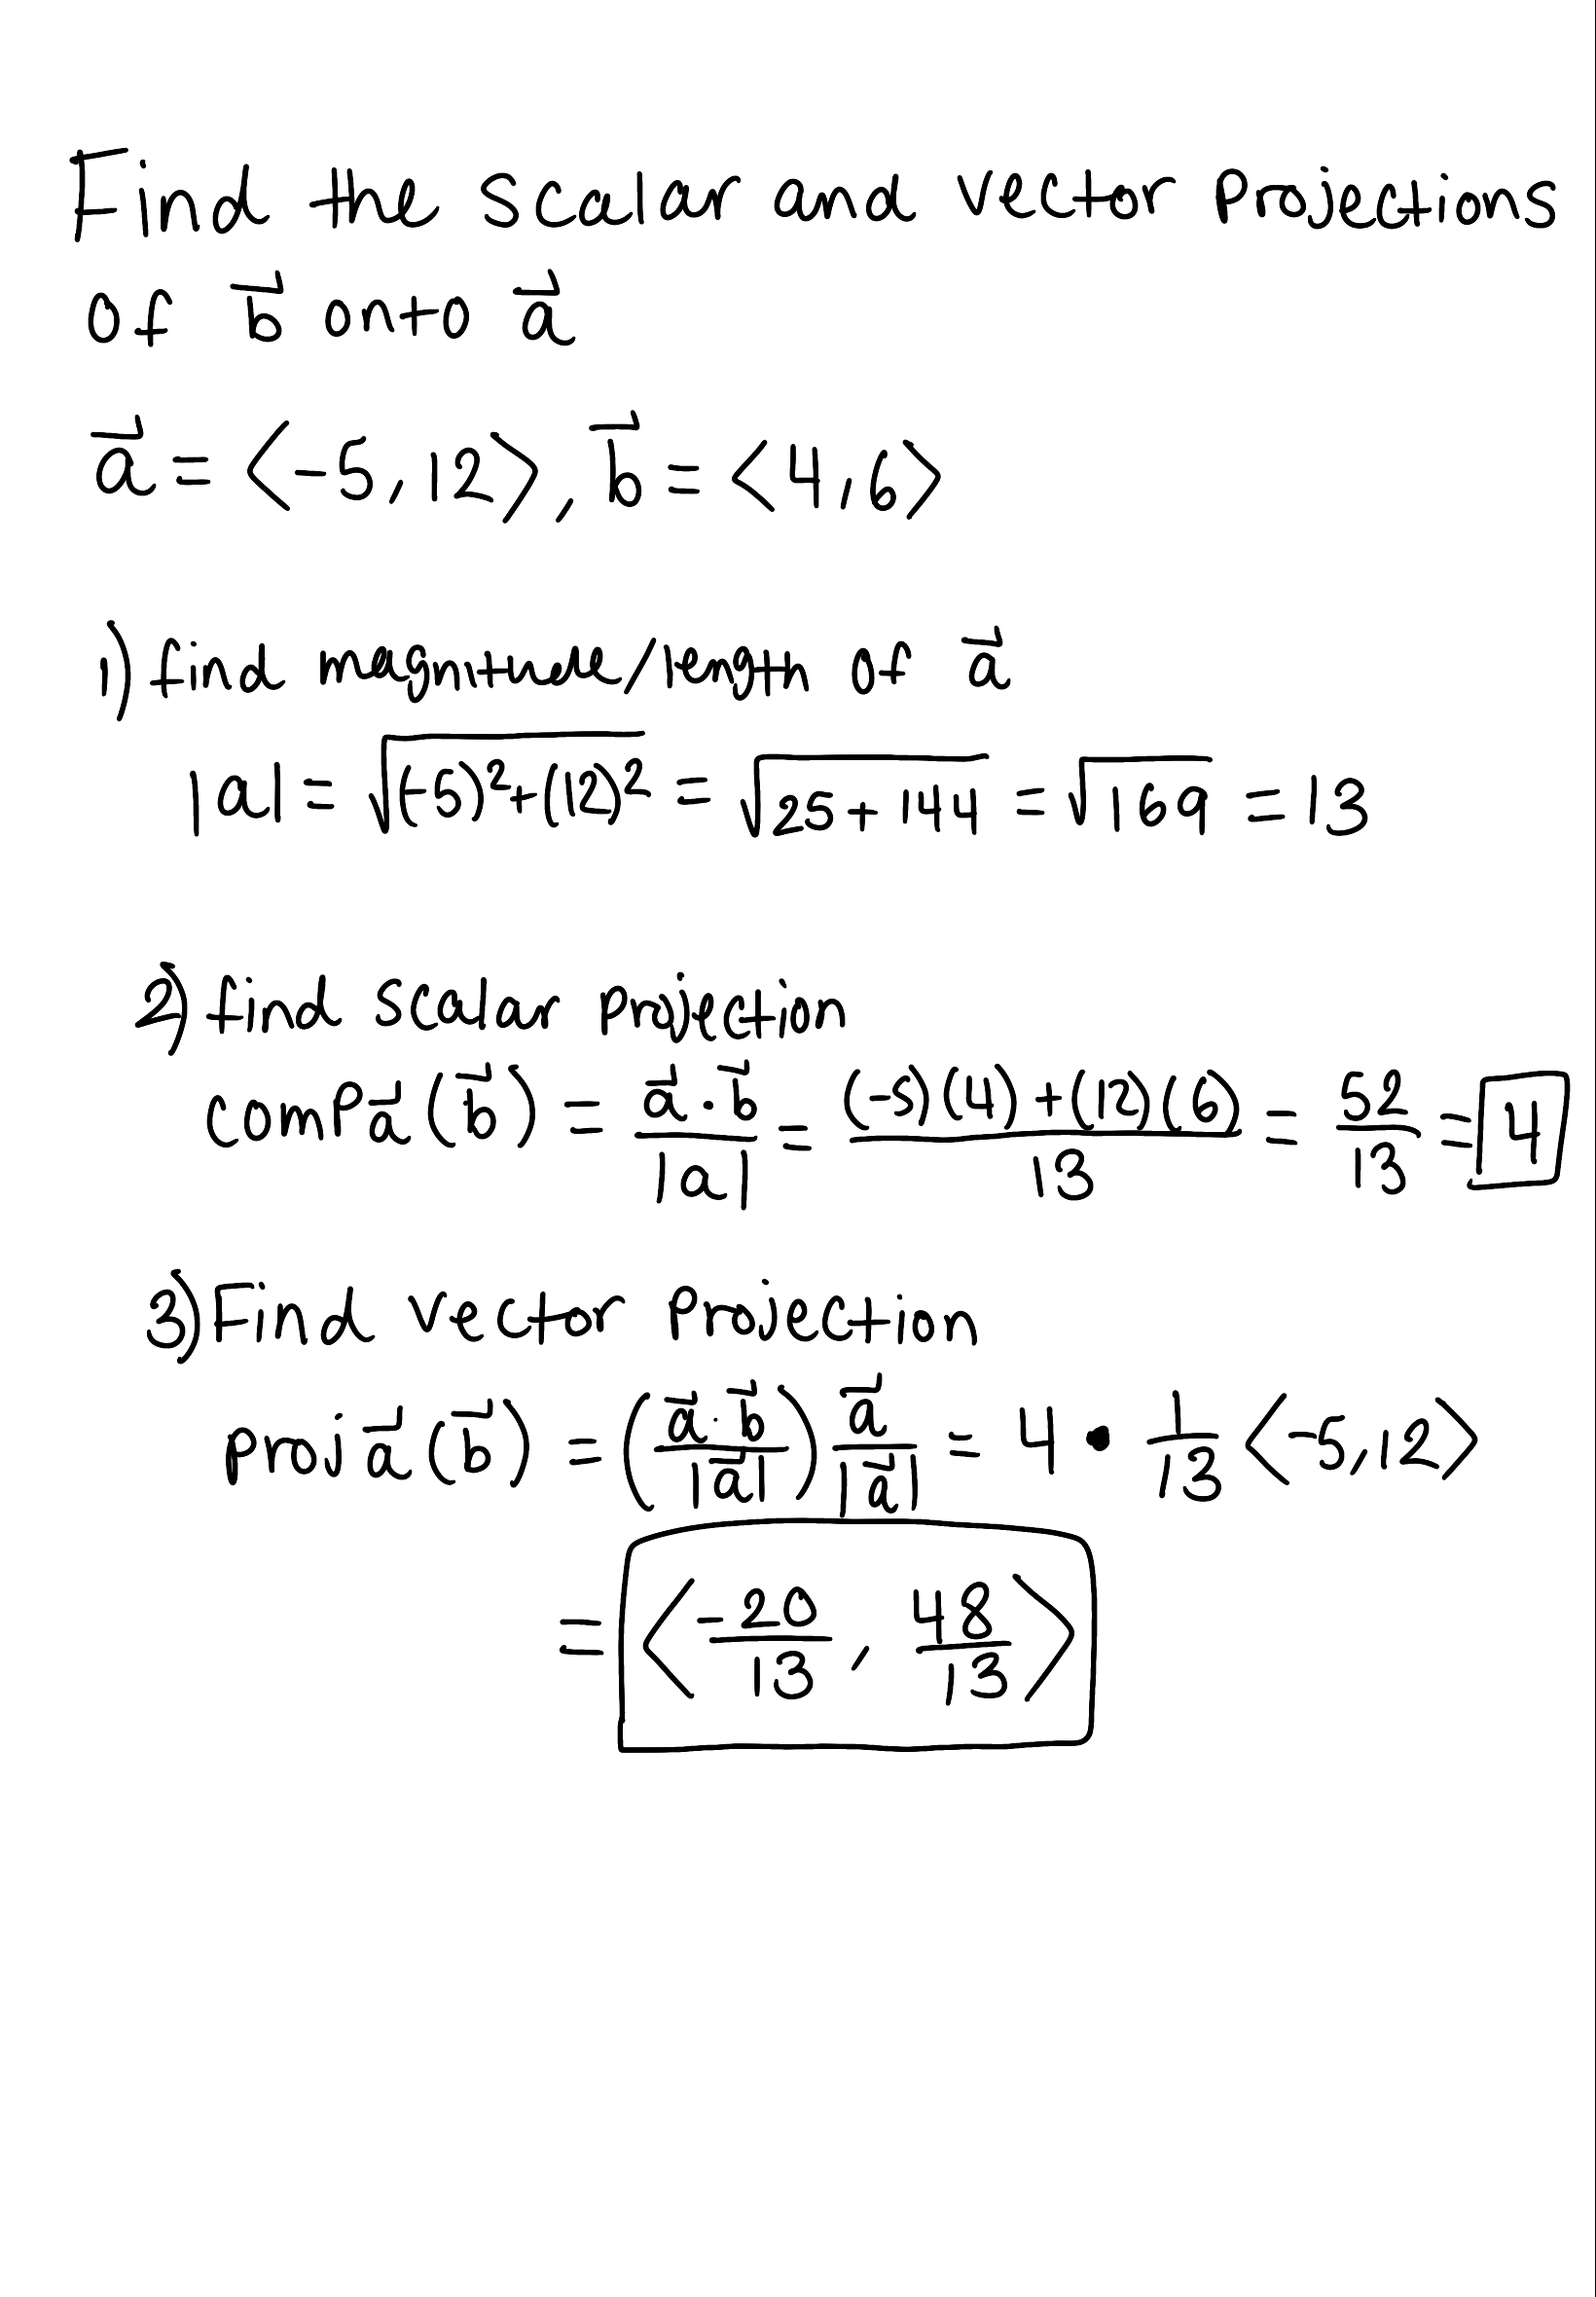 Find the scalar and vector projections
of b⃗ onto a⃗
a⃗ = <-5, 12>, b⃗ = <4, 6>
1) find magnitude/length of a⃗
|a| = √((-5)²+(12)²) = √(25+144) = √169 = 13
2) find scalar projection
comp a⃗ (b⃗) = (a⃗ · b⃗)/|a| = ((-5)(4)+(12)(6))/13 = 52/13 = 4
3) Find vector Projection
proj a⃗ (b⃗) = ((a⃗ · b⃗)/|a⃗|) a⃗/|a⃗| = 4 • 1/13 <-5, 12>
= <-20/13, 48/13>